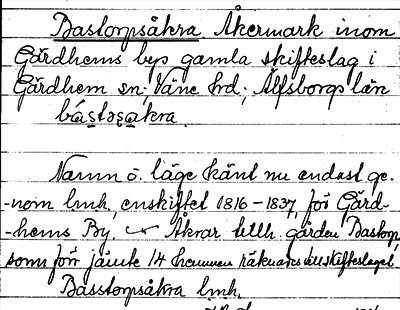 Bastorpsåkra Åkermark inom
Gärdhems bys gamla skifteslag i
Gärdhem sn; Väne hrd; Älfsborgs län
bástɔʂakra.
Namn o. läge känt nu endast ge-
-nom lmh, enskiftet 1816-1837, för Gärd-
-hems By. Åkrar tillh. gården Bastorp,
som förr jämte 14 hemman räknades till skifteslaget.
Basstorpsåkra lmh.